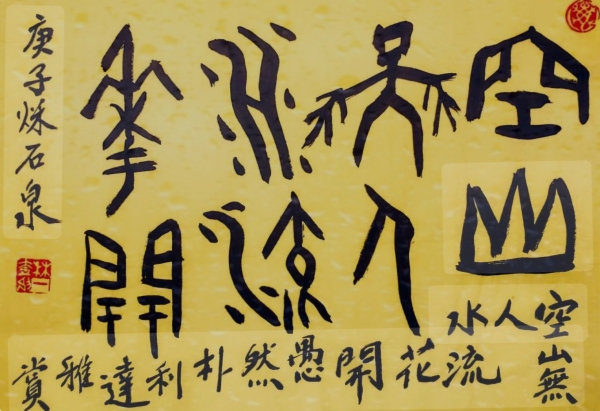 空山
無人
水流
花開
空山無
人水
流花開愚然朴利達雅賞
庚子秌石泉